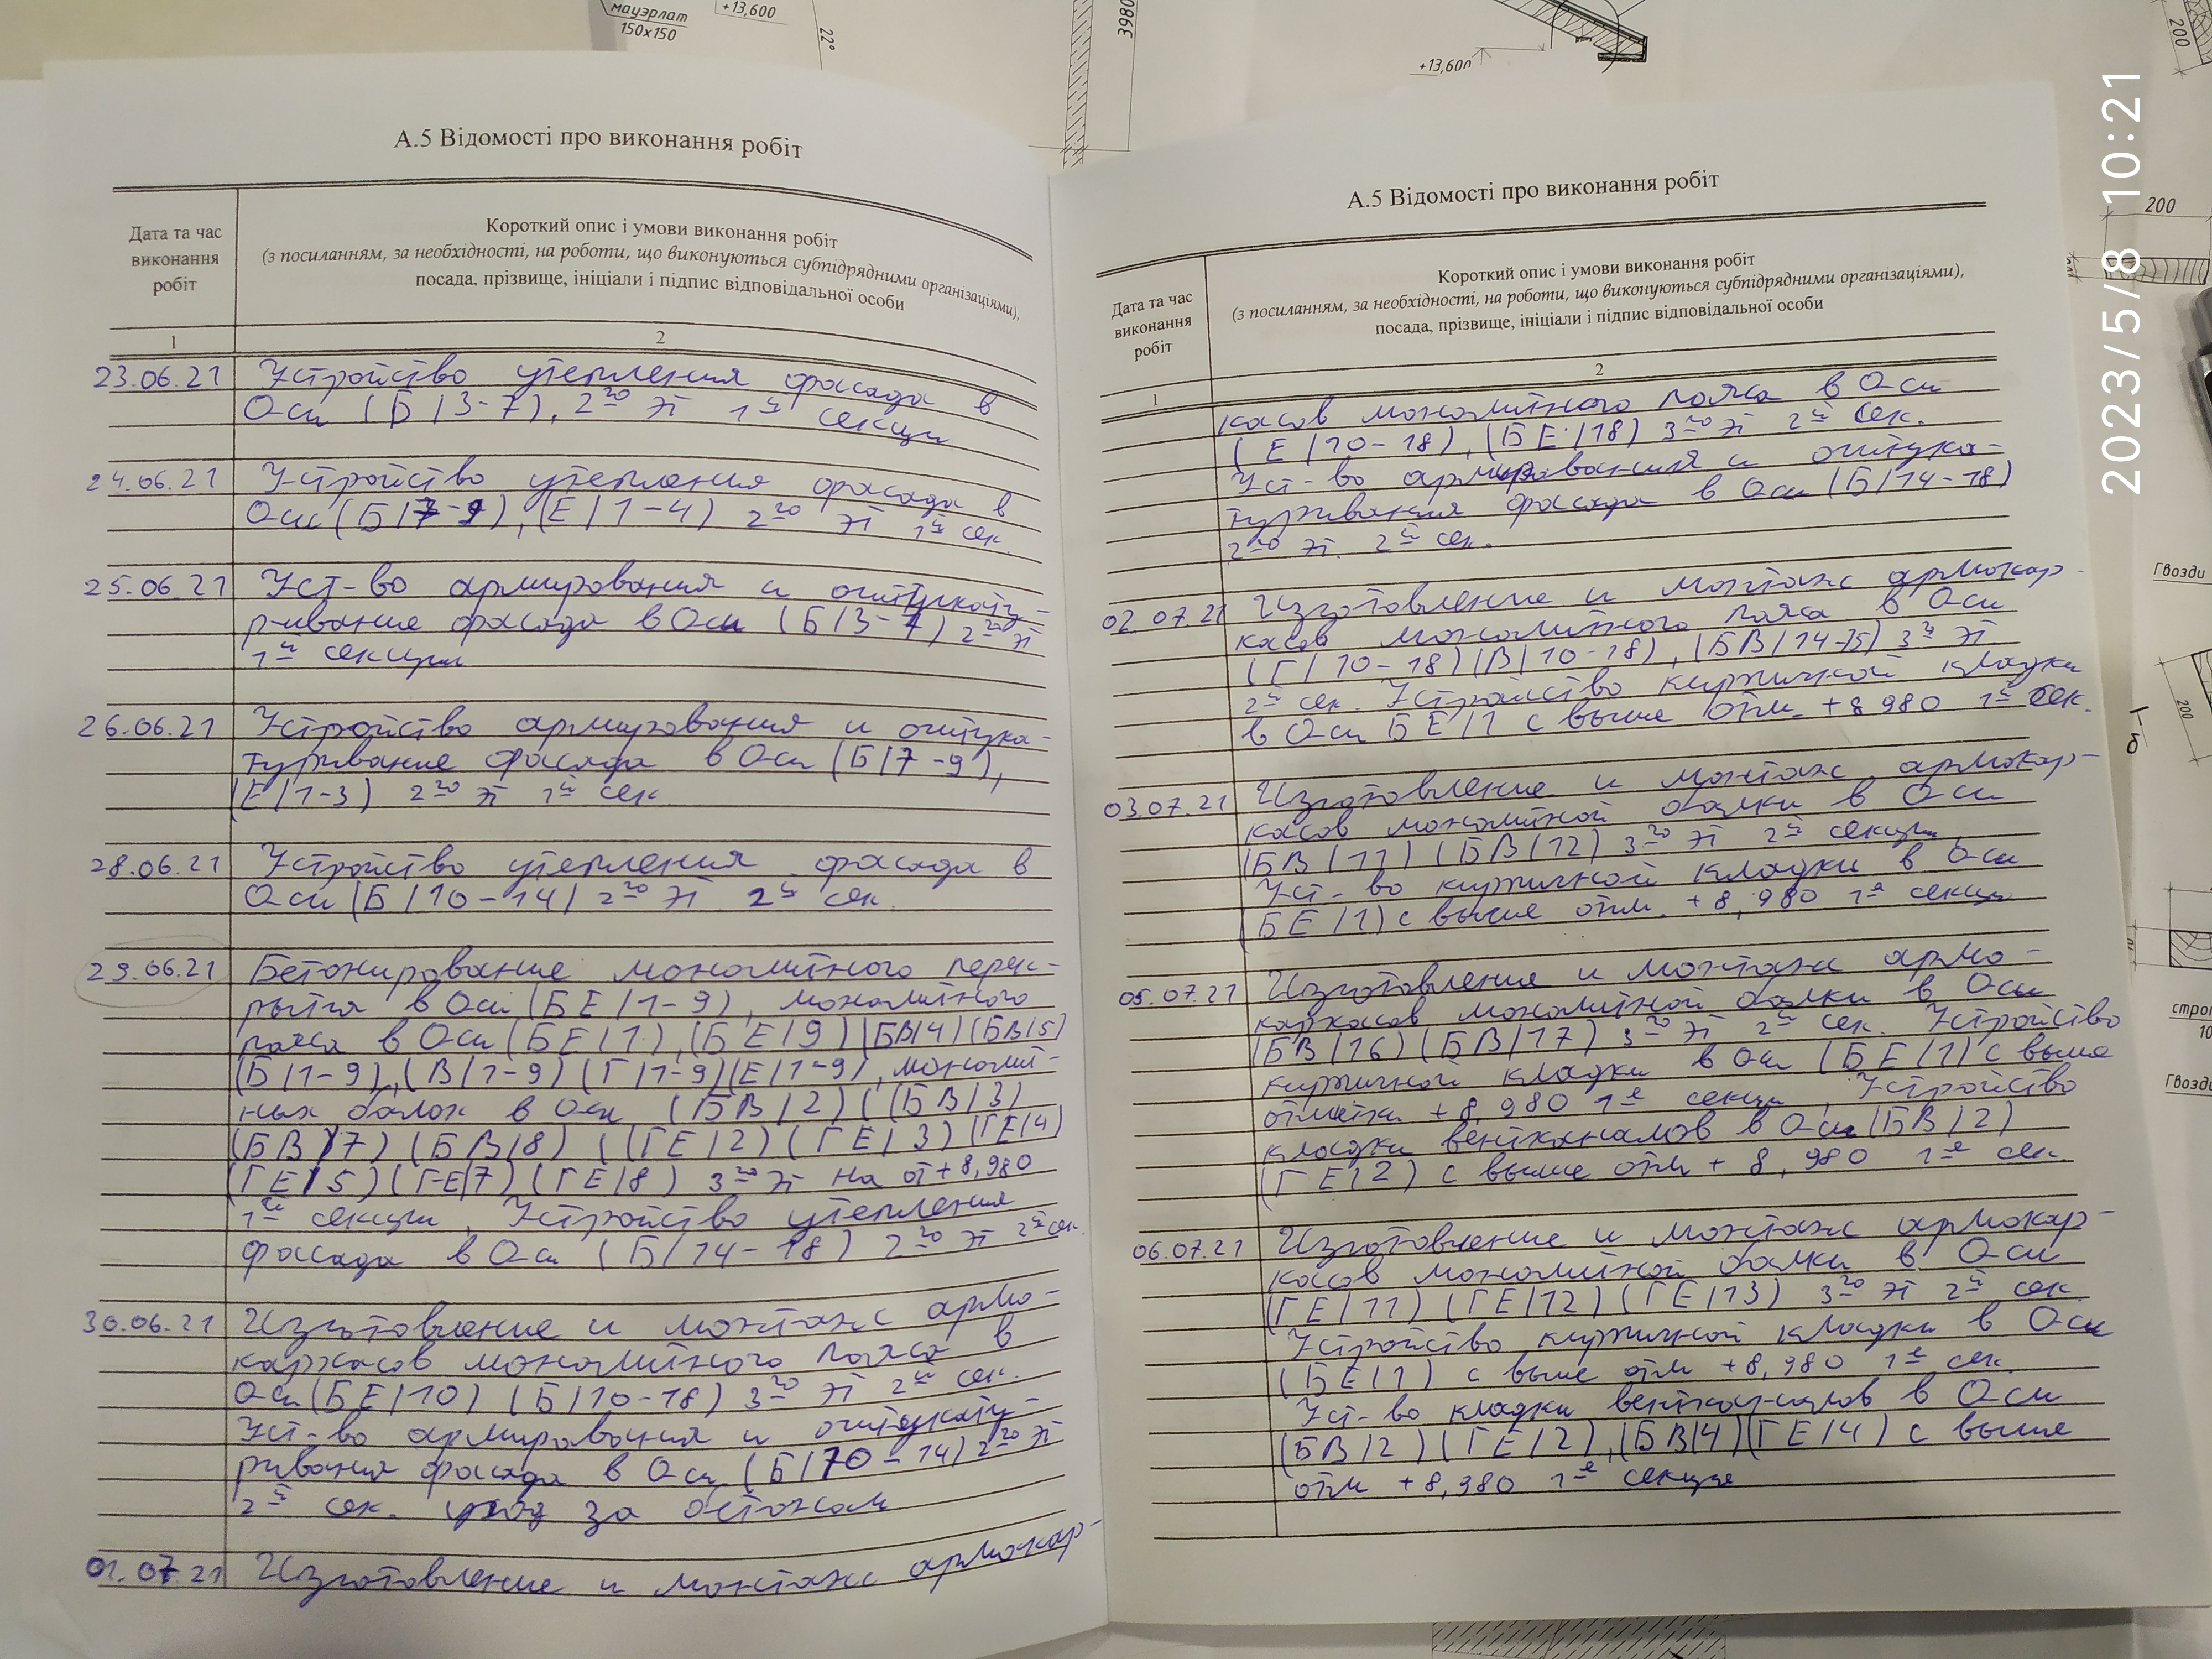 мауэрлат
150х150
+13,600
22°
3980
+13,600
200
200
2023/5/8 10:21
А.5 Відомості про виконання робіт
Дата та час
виконання
робіт
Короткий опис і умови виконання робіт
(з посиланням, за необхідності, на роботи, що виконуються субпідрядними організаціями),
посада, прізвище, ініціали і підпис відповідальної особи
1
2
23.06.21 Устройство утепления фасада в
Оси (Б/3-7), 2го эт 1й секции
24.06.21 Устройство утепления фасада в
Оси (Б/7-9), (Е/1-4) 2го эт 1й сек.
25.06.21 Уст-во армирования и оштукату-
ривание фасада в Оси (Б/3-7) 2го эт
1й секции
26.06.21 Устройство армирования и оштука-
туривание фасада в Оси (Б/7-9),
(Е/1-3) 2го эт 1й сек.
28.06.21 Устройство утепления фасада в
Оси (Б/10-14) 2го эт 2й сек.
29.06.21 Бетонирование монолитного перек-
рытия в Оси (БЕ/1-9), монолитного
пояса в Оси (БЕ/1), (БЕ/9) (БВ/4) (БВ/5)
(Б/1-9), (В/1-9) (Г/1-9) (Е/1-9), монолит-
ных балок в Оси (БВ/2) ((БВ/3)
(БВ/7) (БВ/8) ((ГЕ/2) (ГЕ/3) (ГЕ/4)
(ГЕ/5) (ГЕ/7) (ГЕ/8) 3го эт на от +8,980
1й секции, Устройство утепления
фассада в Оси (Б/14-18) 2го эт 2й сек.
30.06.21 Изготовление и монтаж армо-
каркасов монолитного пояса в
Оси (БЕ/10) (Б/10-18) 3го эт 2й сек.
Уст-во армирования и оштукату-
ривания фасада в Оси (Б/10-14) 2го эт
2й сек. уход за бетоном
01.07.21 Изготовление и монтаж армокар-
А.5 Відомості про виконання робіт
Дата та час
виконання
робіт
Короткий опис і умови виконання робіт
(з посиланням, за необхідності, на роботи, що виконуються субпідрядними організаціями),
посада, прізвище, ініціали і підпис відповідальної особи
1
2
касов монолитного пояса в Оси
(Е/10-18), (БЕ/18) 3го эт 2й сек.
Уст-во армирования и оштука-
туривания фасада в Оси (Б/14-18)
2го эт. 2й сек.
02.07.21 Изготовление и монтаж армокар-
касов монолитного пояса в Оси
(Г/10-18) (В/10-18), (БВ/14-15) 3й эт
2й сек. Устройство кирпичной кладки
в Оси БЕ/1 с выше отм. +8 980 1й сек.
03.07.21 Изготовление и монтаж армокар-
касов монолитной балки в Оси
(БВ/11) (БВ/12) 3го эт 2й секции
Уст-во кирпичной кладки в Оси
(БЕ/1) с выше отм. +8,980 1й секции
05.07.21 Изготовления и монтаж армо-
каркасов монолитной балки в Оси
(БВ/16) (БВ/17) 3го эт 2й сек. Устройство
кирпичной кладки в Оси (БЕ/1) с выше
отметки +8,980 1й секции, Устройство
кладки вентканалов в Оси (БВ/2)
(ГЕ/2) с выше отм + 8,980 1й сек.
06.07.21 Изготовление и монтаж армокар-
касов монолитной балки в Оси
(ГЕ/11) (ГЕ/12) (ГЕ/13) 3го эт 2й сек.
Устройство кирпичной кладки в Оси
(БЕ/1) с выше отм +8,980 1й сек.
Уст-во кладки вентканалов в Оси
(БВ/2) (ГЕ/2), (БВ/4) (ГЕ/4) с выше
отм +8,980 1й секции
Гвозди
200
б-1
Гвозди